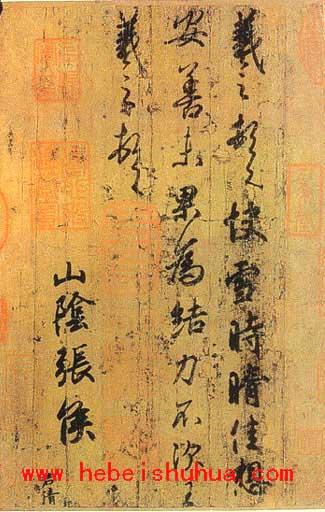 羲之頓首快雪時晴佳想
安善未果為結力不次王
羲之頓首
山陰張侯
君倩
www.hebeishuhua.com